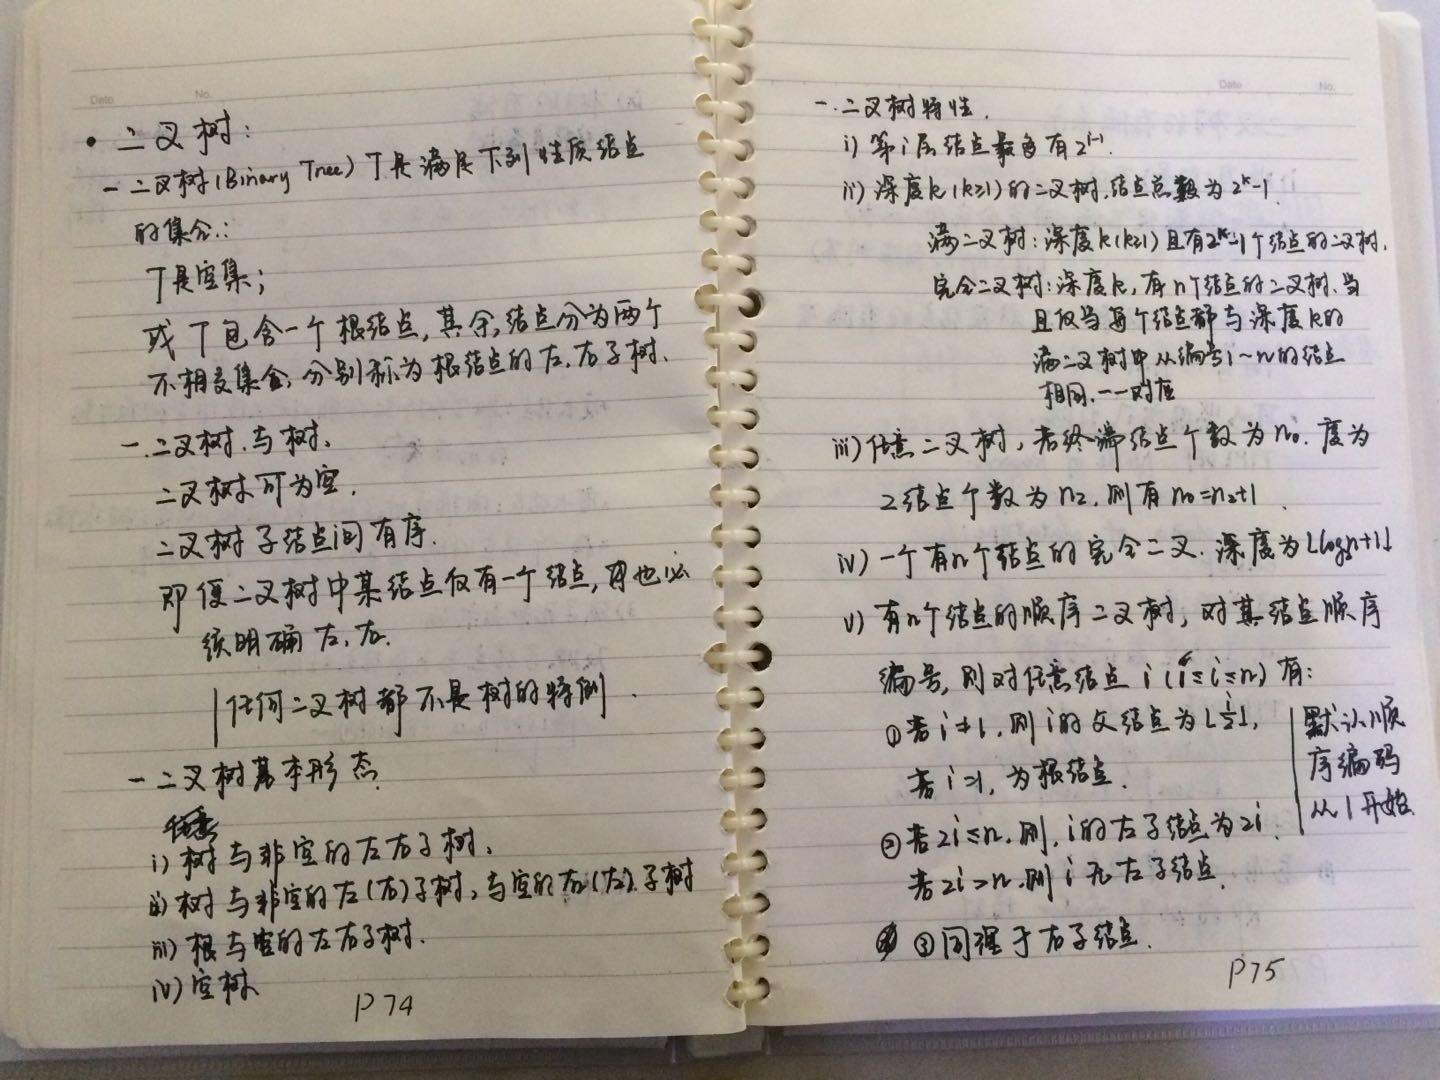 Date No.
• 二叉树:
一 二叉树(Binary Tree) T是满足下列性质结点
的集合:
T是空集;
或 T包含一个根结点,其余,结点分为两个
不相交集合,分别称为根结点的左.右子树.
一.二叉树.与树.
二叉树可为空.
二叉树子结点间有序.
即便二叉树中某结点仅有一个结点,也必
须明确左.右.
任何二叉树都不是树的特例.
一 二叉树基本形态.
i) 树与非空的左右子树.
ii) 树与非空的左(右)子树,与空的右(左)子树
iii) 根与空的左右子树.
iv) 空树.
P74
Date No.
一.二叉树特性.
i) 第i层结点最多有2^(i-1).
ii) 深度k(k≥1)的二叉树.结点总数为2^k-1.
满二叉树:深度k(k≥1)且有2^k-1个结点的二叉树.
完全二叉树:深度k,有n个结点的二叉树.当
且仅当每个结点都与深度k的
满二叉树中从编号1~n的结点
相同.一一对应
iii) 任意二叉树,若终端结点个数为n₀.度为
2结点个数为n₂.则有n₀=n₂+1.
iv) 一个有n个结点的完全二叉.深度为⌊log₂n+1⌋
v) 有n个结点的顺序二叉树,对其结点顺序
编号,则对任意结点i(1≤i≤n)有:
①若i≠1.则i的父结点为⌊i/2⌋,
若i=1,为根结点.
②若2i≤n.则.i的左子结点为2i.
若2i>n.则i无左子结点.
③同理于右子结点.
默认顺
序编码
从1开始.
P75